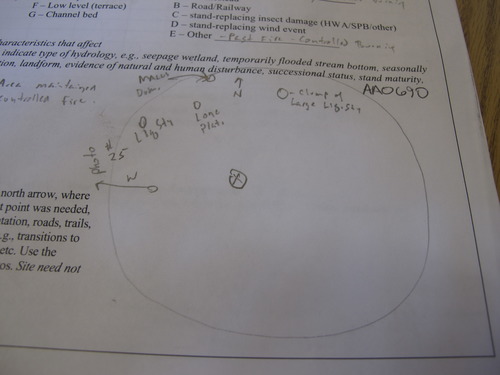 F – Low level (terrace)
G – Channel bed
B – Road/Railway
C – stand-replacing insect damage (HWA/SPB/other)
D – stand-replacing wind event
E – Other - Past Fire - Controlled Burning
haracteristics that affect
indicate type of hydrology, e.g., seepage wetland, temporarily flooded stream bottom, seasonally
tion, landform, evidence of natural and human disturbance, successional status, stand maturity,
Area maintained
controlled fire.
AA0690
N
O - Clump of
Large Lig. Sty
Lone
Plat.
Lig Sty
Photo #
25
W
north arrow, where
t point was needed,
tation, roads, trails,
.g., transitions to
etc. Use the
os. Site need not